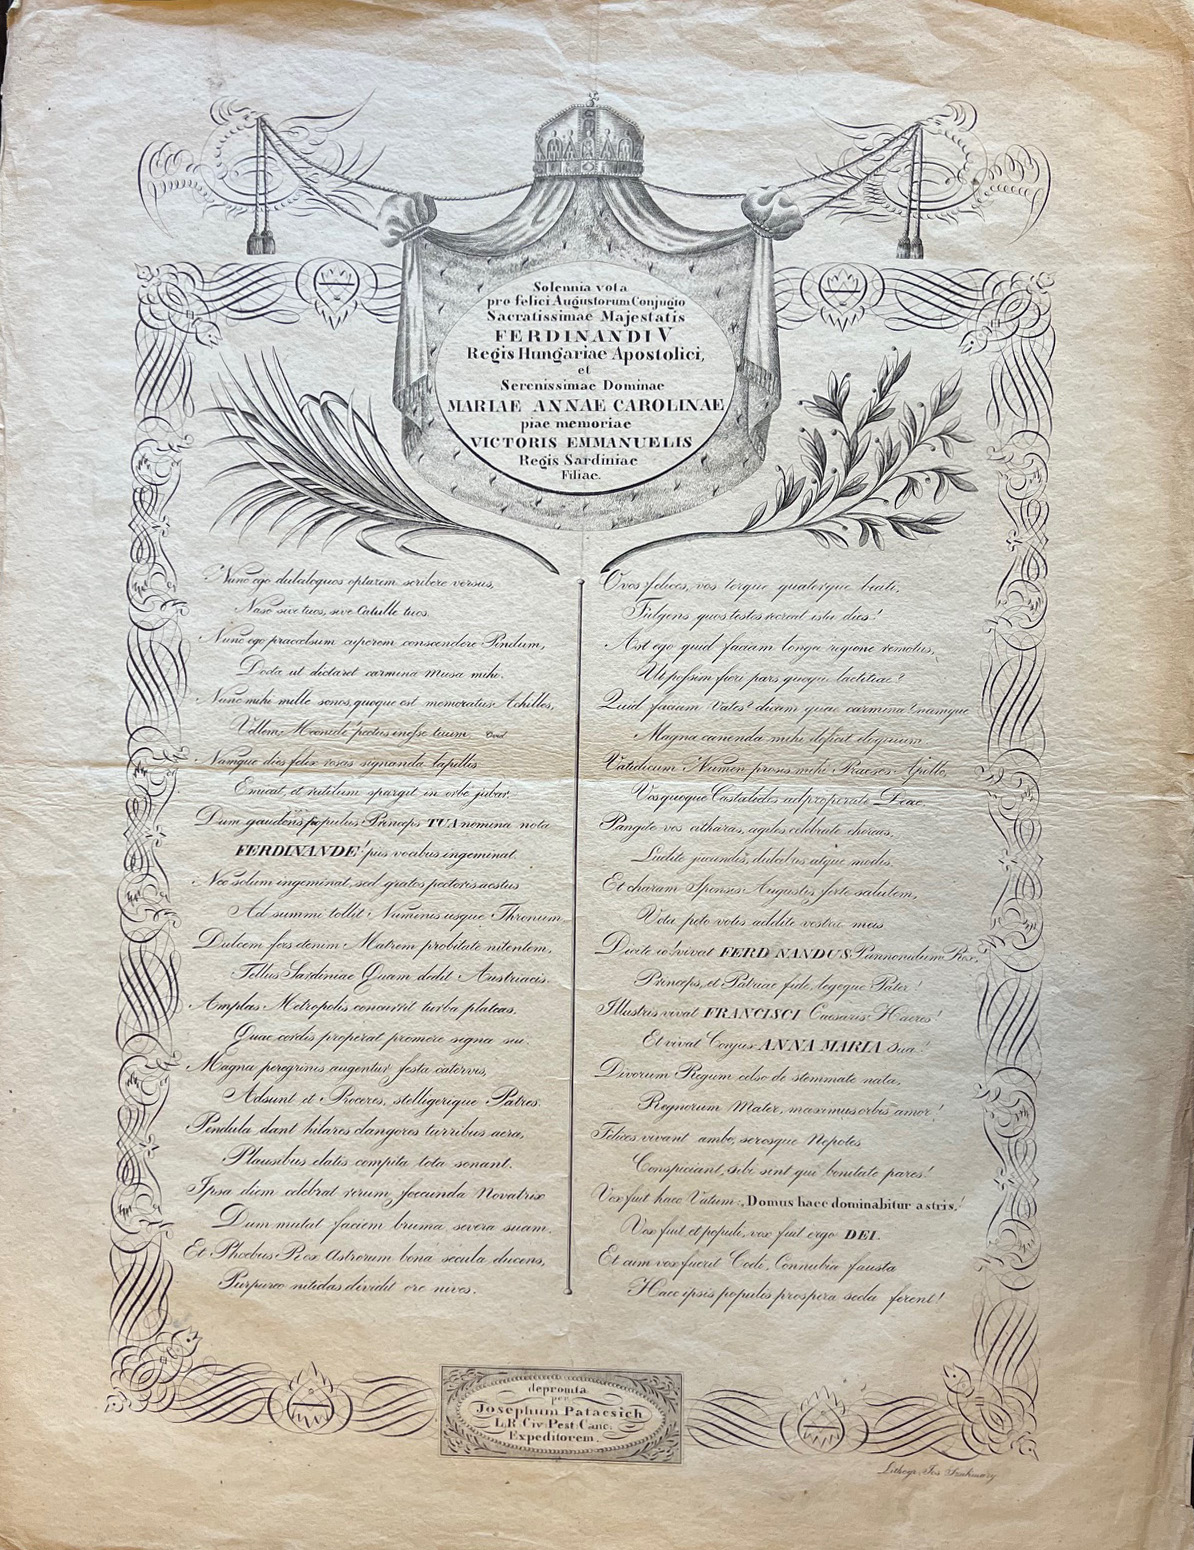 Solennia vota
pro felici Augustorum Conjugio
Sacratissimae Majestatis
FERDINANDI V
Regis Hungariae Apostolici,
et
Serenissimae Dominae
MARIAE ANNAE CAROLINAE
piae memoriae
VICTORIS EMMANUELIS
Regis Sardiniae
Filiae.
Nunc ego dulciloquos optarem scribere versus,
Naso sive tuos, sive Catulle tuos.
Nunc ego praecelsum cuperem conscendere Pindum,
Docta ut dictaret carmina Musa mihi.
Nunc mihi mille sonos, quoque est memoratus Achilles,
Vellem Meonide pectus inesse tuum Ovid
Namque dies felix rosas signanda lapillis
Emicat, et rutilum spargit in orbe jubar.
Dum gaudens populus Princeps TUA nomina nota
FERDINANDE! piis vocibus ingeminat.
Nec solum ingeminat, sed gratos pectoris aestus
Ad summi tollit Numinis usque Thronum
Dulcem fers etenim Matrem probitate nitentem,
Tellus Sardiniae Quam dedit Austriacis.
Amplas Metropolis concurrit turba plateas.
Quae cordis properat promere signa sui.
Magna peregrinis augentur festa catervis,
Adsunt et Proceres, stelligerique Patres.
Pendula dant hilares clangores turribus aera,
Plausibus elatis compita tota sonant.
Ipsa diem celebrat rerum foecunda Novatrix
Dum mutat faciem bruma severa suam.
Et Phoebus Rex Astrorum bona secula ducens,
Purpureo nitidas dividit ore nives.
O vos felices, vos terque quaterque beati,
Fulgens quos testes recreat ista dies!
Ast ego quid faciam longa regione remotus,
Ut possim fieri pars quoque laetitiae?
Quid faciam Vates? dicam quae carmina? namque
Magna canenda mihi deficit eloquium
Vatidicum Numen prosis mihi Praeses Apollo,
Vos quoque Castalides adproperate Deae.
Pangite vos citharas, agiles celebrate choreas,
Ludite jucundis, dulcibus atque modis,
Et charam Sponsis Augustis ferte salutem,
Vota peto votis addite vestra meis
Dicite io! vivat FERDINANDUS Pannonidum Rex,
Princeps, et Patriae fide, legeque Pater!
Illustris vivat FRANCISCI Caesaris Haeres!
Et vivat Conjux ANNA MARIA Sua!
Divorum Regum celso de stemmate nata,
Regnorum Mater, maximus orbis amor!
Felices vivant ambo, serosque Nepotes
Conspiciant, sibi sint qui bonitate pares!
Vox fuit haec Vatum: „Domus haec dominabitur astris,!
Vox fuit et populi, vox fuit ergo DEI.
Et cum vox fuerit Coeli, Connubia fausta
Haec ipsis populis prospera secla ferent!
depromta
per
Josephum Patacsich
L.R. Civ. Pest. Canc.
Expeditorem.
Lithogr. Jos